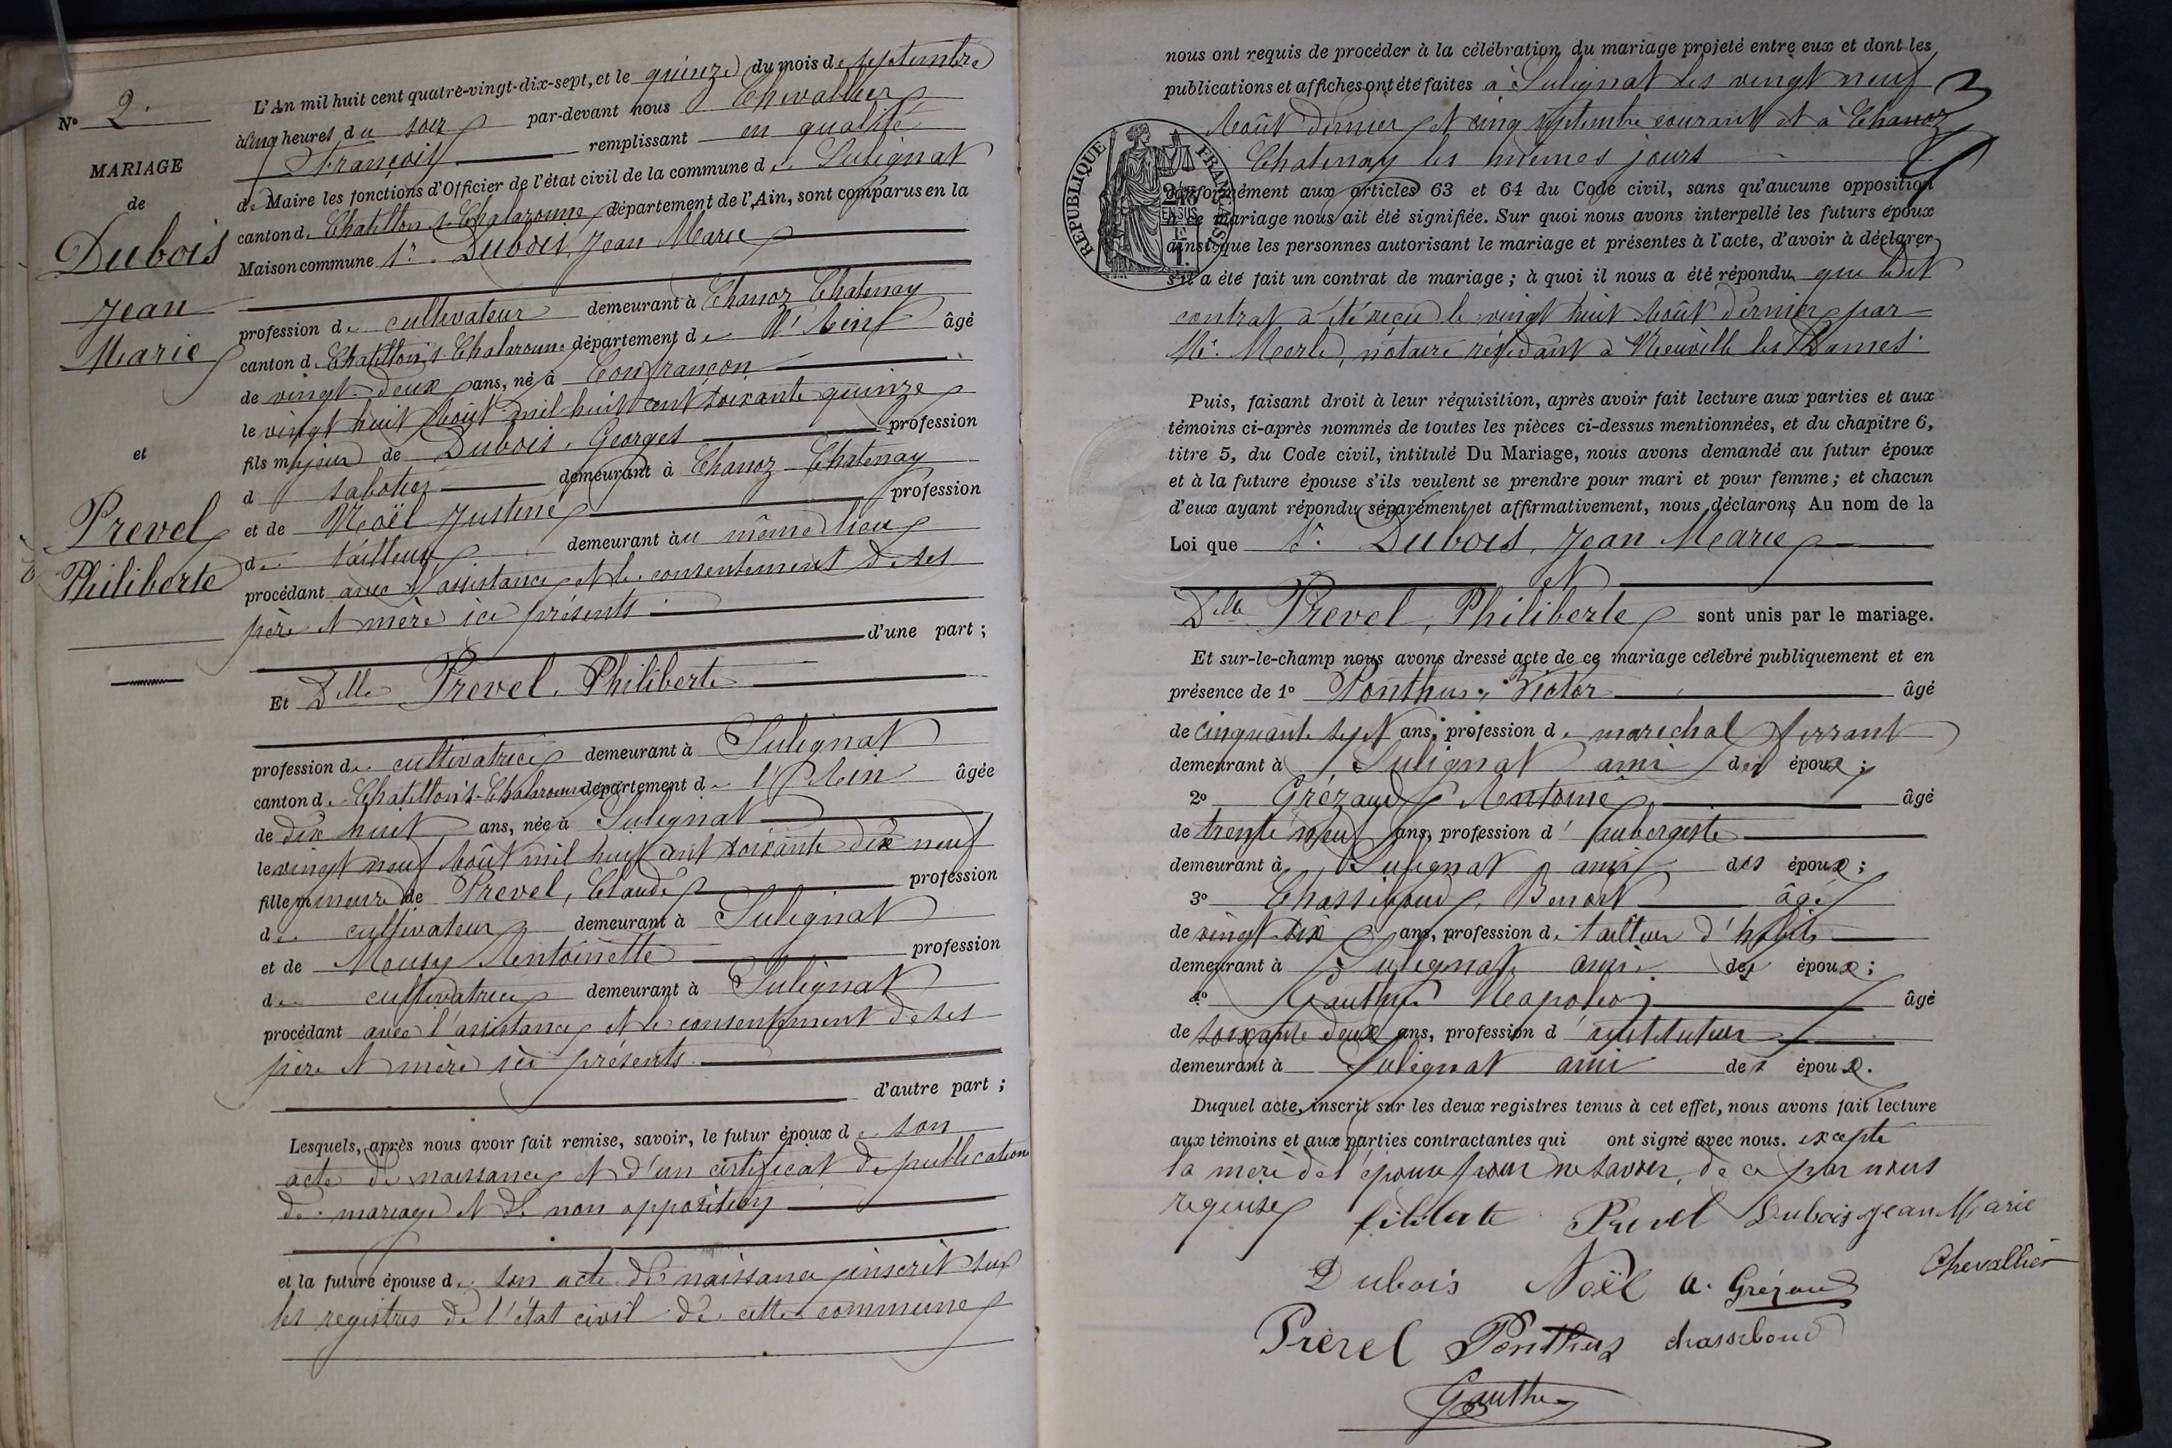 N° 2.
MARIAGE
de
Dubois
Jean
Marie
et
Prevel
Philiberte
L'An mil huit cent quatre-vingt-dix-sept, et le quinze du mois de septembre
à cinq heures du soir par-devant nous Chevallier
François remplissant en qualité
de Maire les fonctions d'Officier de l'état civil de la commune de Sulignat
canton de Chatillon s. Chalaronne, département de l'Ain, sont comparus en la
Maison commune 1° Dubois, Jean Marie
profession de cultivateur demeurant à Chanoz Chatenay
canton de Chatillon s. Chalaronne département de l'Ain âgé
de vingt-deux ans, né à Confrançon
le vingt huit Août mil huit cent soixante quinze
fils majeur de Dubois, Georges profession
d sabotier demeurant à Chanoz Chatenay
et de Noël Justine profession
de tailleuse demeurant au même lieu
procédant avec l'assistance et le consentement de ses
père et mère ici présents
d'une part ;
Et Delle Prevel, Philiberte
profession de cultivatrice demeurant à Sulignat
canton de Chatillon s. Chalaronne département de l'Ain âgée
de dix huit ans, née à Sulignat
le vingt neuf Août mil huit cent soixante dix neuf
fille mineure de Prevel, Claude profession
de cultivateur demeurant à Sulignat
et de Meusy Antoinette profession
de cultivatrice demeurant à Sulignat
procédant avec l'assistance et le consentement de ses
père et mère ici présents
d'autre part ;
Lesquels, après nous avoir fait remise, savoir, le futur époux de son
acte de naissance et d'un certificat de publication
de mariage et de non opposition
et la future épouse de son acte de naissance inscrit sur
les registres de l'état civil de cette commune
nous ont requis de procéder à la célébration du mariage projeté entre eux et dont les
publications et affiches ont été faites à Sulignat les vingt neuf
Août dernier et cinq septembre courant et à Chanoz
Chatenay les mêmes jours
RÉPUBLIQUE FRANÇAISE
conformément aux articles 63 et 64 du Code civil, sans qu'aucune opposition
à ce mariage nous ait été signifiée. Sur quoi nous avons interpellé les futurs époux
ainsi que les personnes autorisant le mariage et présentes à l'acte, d'avoir à déclarer
s'il a été fait un contrat de mariage ; à quoi il nous a été répondu que ledit
contrat a été reçu le vingt huit Août dernier par
Me. Merle, notaire résidant à Neuville les Dames.
Puis, faisant droit à leur réquisition, après avoir fait lecture aux parties et aux
témoins ci-après nommés de toutes les pièces ci-dessus mentionnées, et du chapitre 6,
titre 5, du Code civil, intitulé Du Mariage, nous avons demandé au futur époux
et à la future épouse s'ils veulent se prendre pour mari et pour femme ; et chacun
d'eux ayant répondu séparément et affirmativement, nous déclarons Au nom de la
Loi que 1° Dubois, Jean Marie
et
Delle Prevel, Philiberte sont unis par le mariage.
Et sur-le-champ nous avons dressé acte de ce mariage célébré publiquement et en
présence de 1° Ponthus, Victor âgé
de cinquante sept ans, profession de marechal ferrant
demeurant à Sulignat ami des époux ;
2° Grézaud, Antoine âgé
de trente neuf ans, profession d' aubergiste
demeurant à Sulignat ami des époux ;
3° Chassiboud, Benoît âgé
de vingt six ans, profession de tailleur d'habits
demeurant à Sulignat ami des époux ;
4° Gauthier Napoléon âgé
de soixante deux ans, profession d' instituteur
demeurant à Sulignat ami des époux.
Duquel acte, inscrit sur les deux registres tenus à cet effet, nous avons fait lecture
aux témoins et aux parties contractantes qui ont signé avec nous. excepté
la mère de l'épouse pour ne savoir, de ce par nous
requise
filiberte Prevel Dubois Jean Marie
Dubois Noël A. Grézaud Chevallier
Prevel Ponthus chassiboud
Gauthier